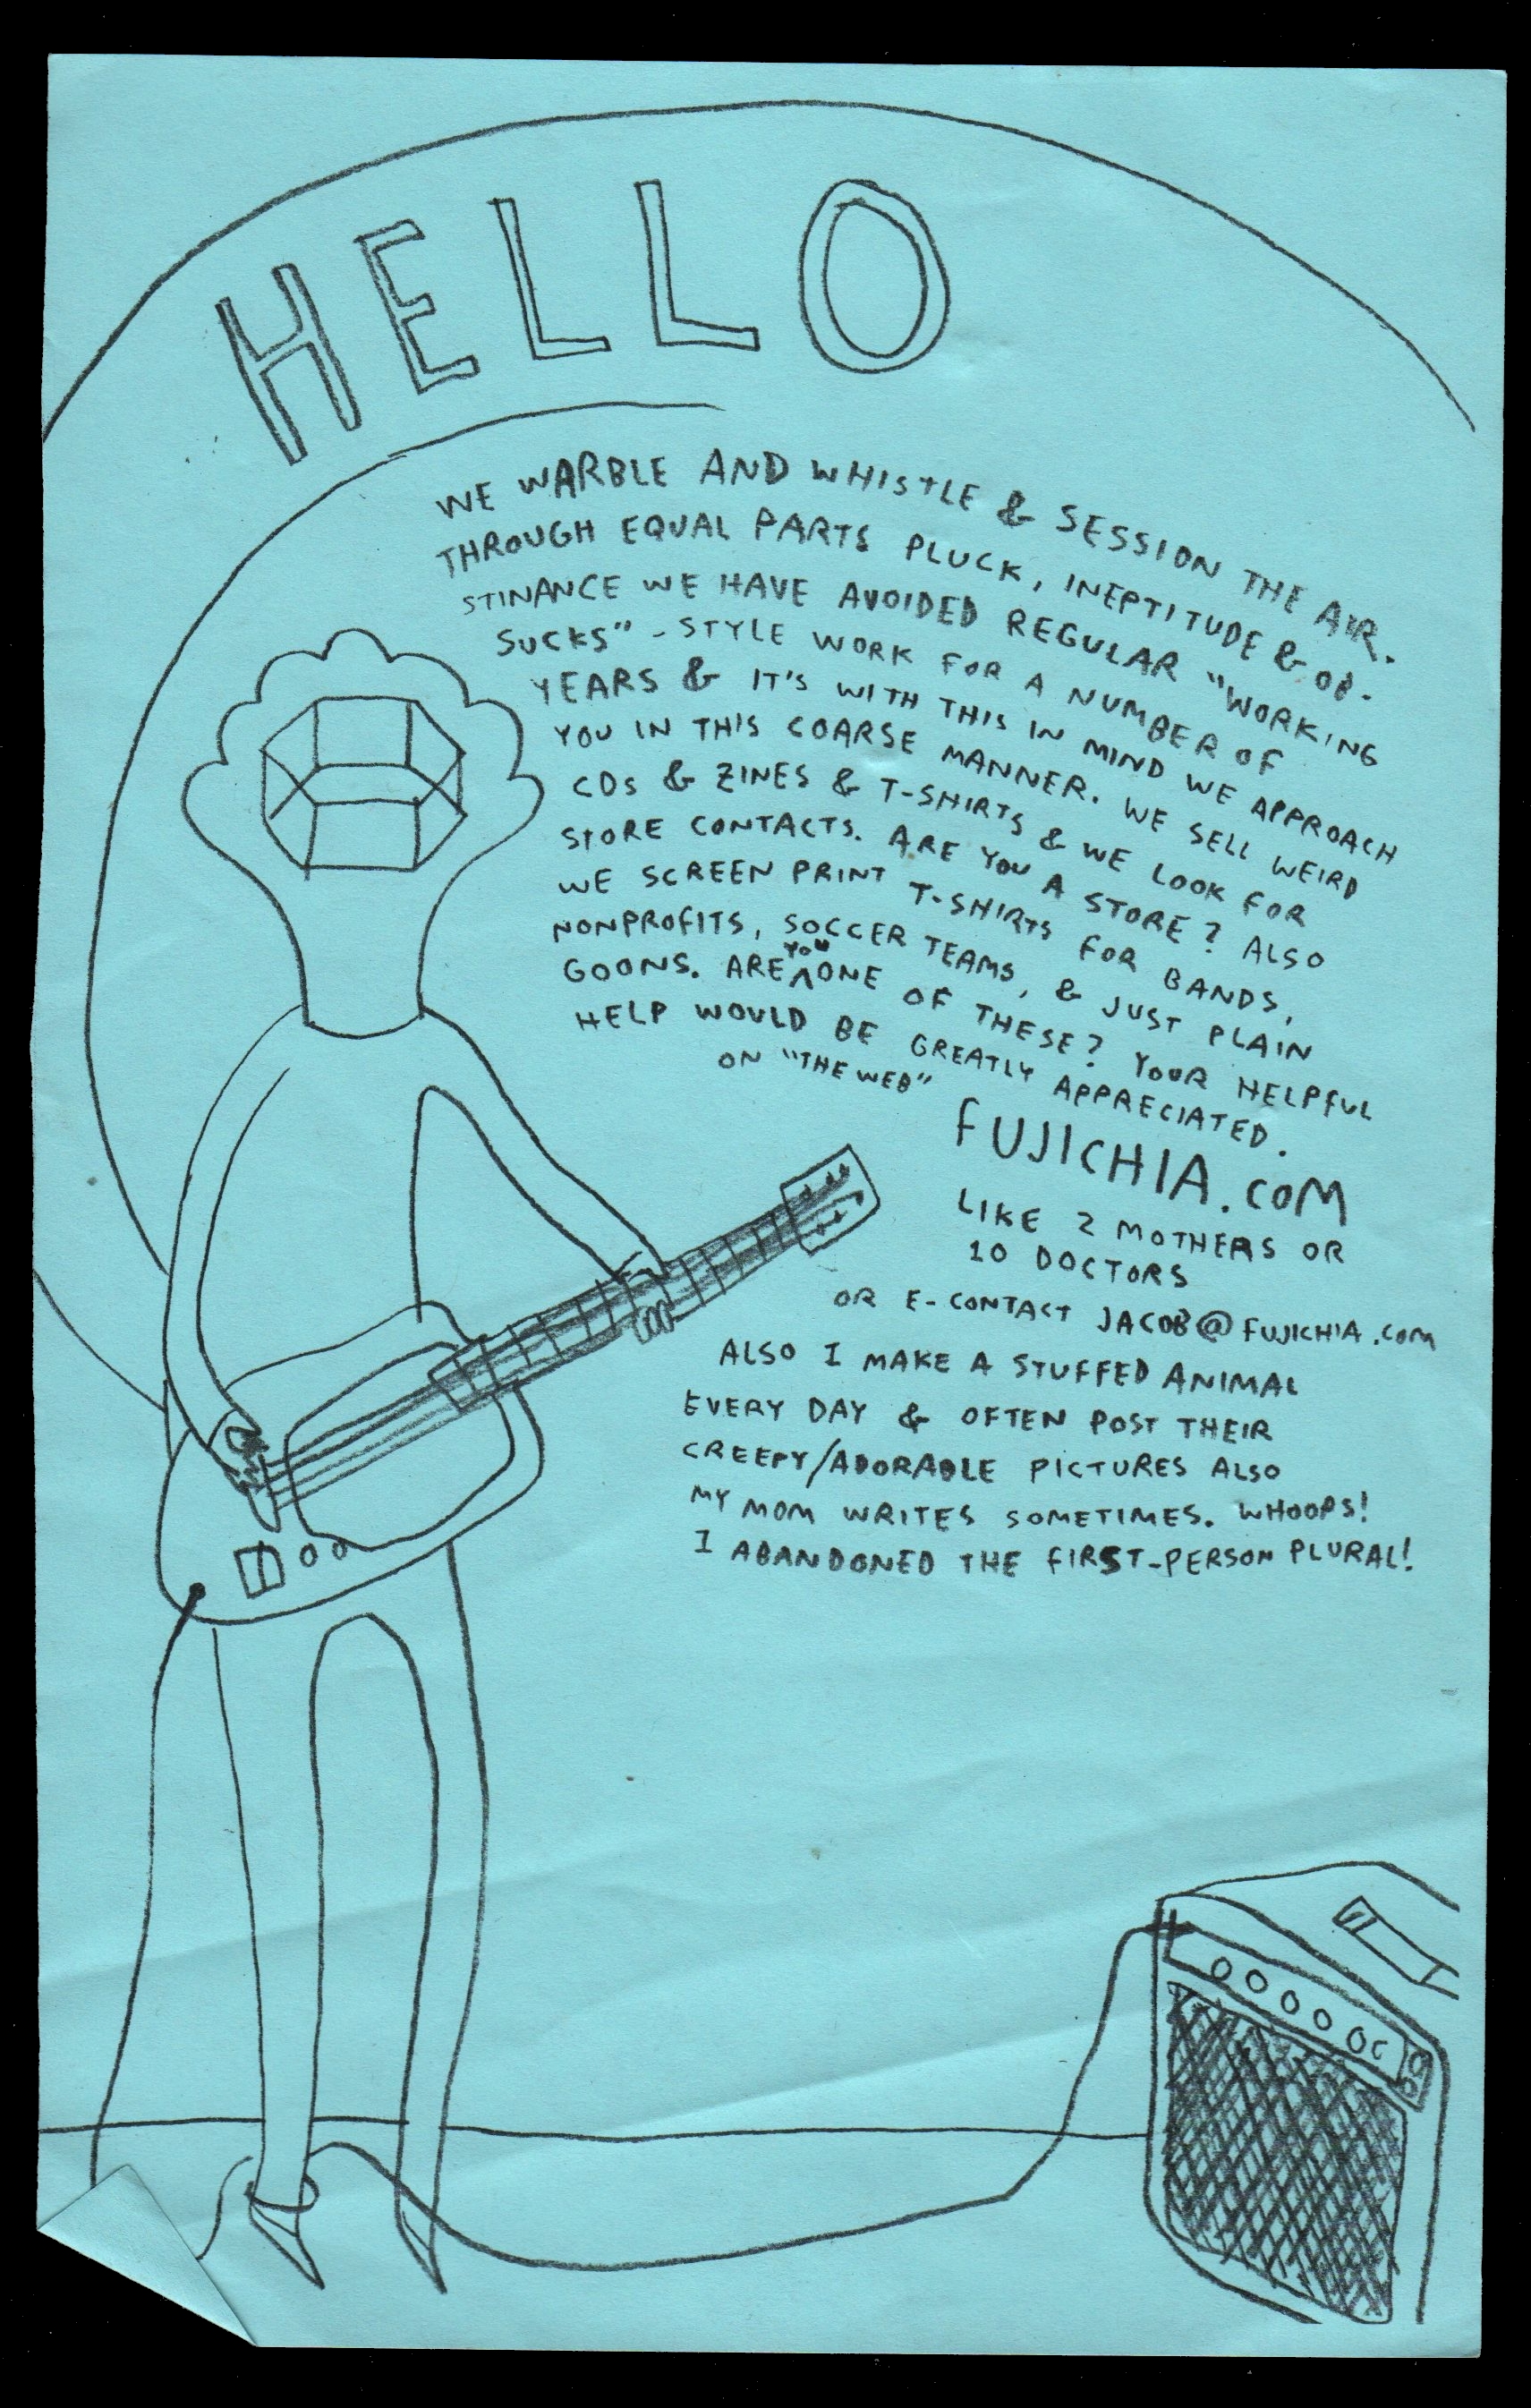 HELLO
WE WARBLE AND WHISTLE & SESSION THE AIR.
THROUGH EQUAL PARTS PLUCK, INEPTITUDE & OB-
STINANCE WE HAVE AVOIDED REGULAR "WORKING
SUCKS"-STYLE WORK FOR A NUMBER OF
YEARS & IT'S WITH THIS IN MIND WE APPROACH
YOU IN THIS COARSE MANNER. WE SELL WEIRD
CDs & ZINES & T-SHIRTS & WE LOOK FOR
STORE CONTACTS. ARE YOU A STORE? ALSO
WE SCREEN PRINT T-SHIRTS FOR BANDS,
NONPROFITS, SOCCER TEAMS, & JUST PLAIN
GOONS. ARE YOU ONE OF THESE? YOUR HELPFUL
HELP WOULD BE GREATLY APPRECIATED.
ON "THE WEB"
FUJICHIA.COM
LIKE 2 MOTHERS OR
10 DOCTORS
OR E-CONTACT JACOB@FUJICHIA.COM
ALSO I MAKE A STUFFED ANIMAL
EVERY DAY & OFTEN POST THEIR
CREEPY/ADORABLE PICTURES ALSO
MY MOM WRITES SOMETIMES. WHOOPS!
I ABANDONED THE FIRST-PERSON PLURAL!